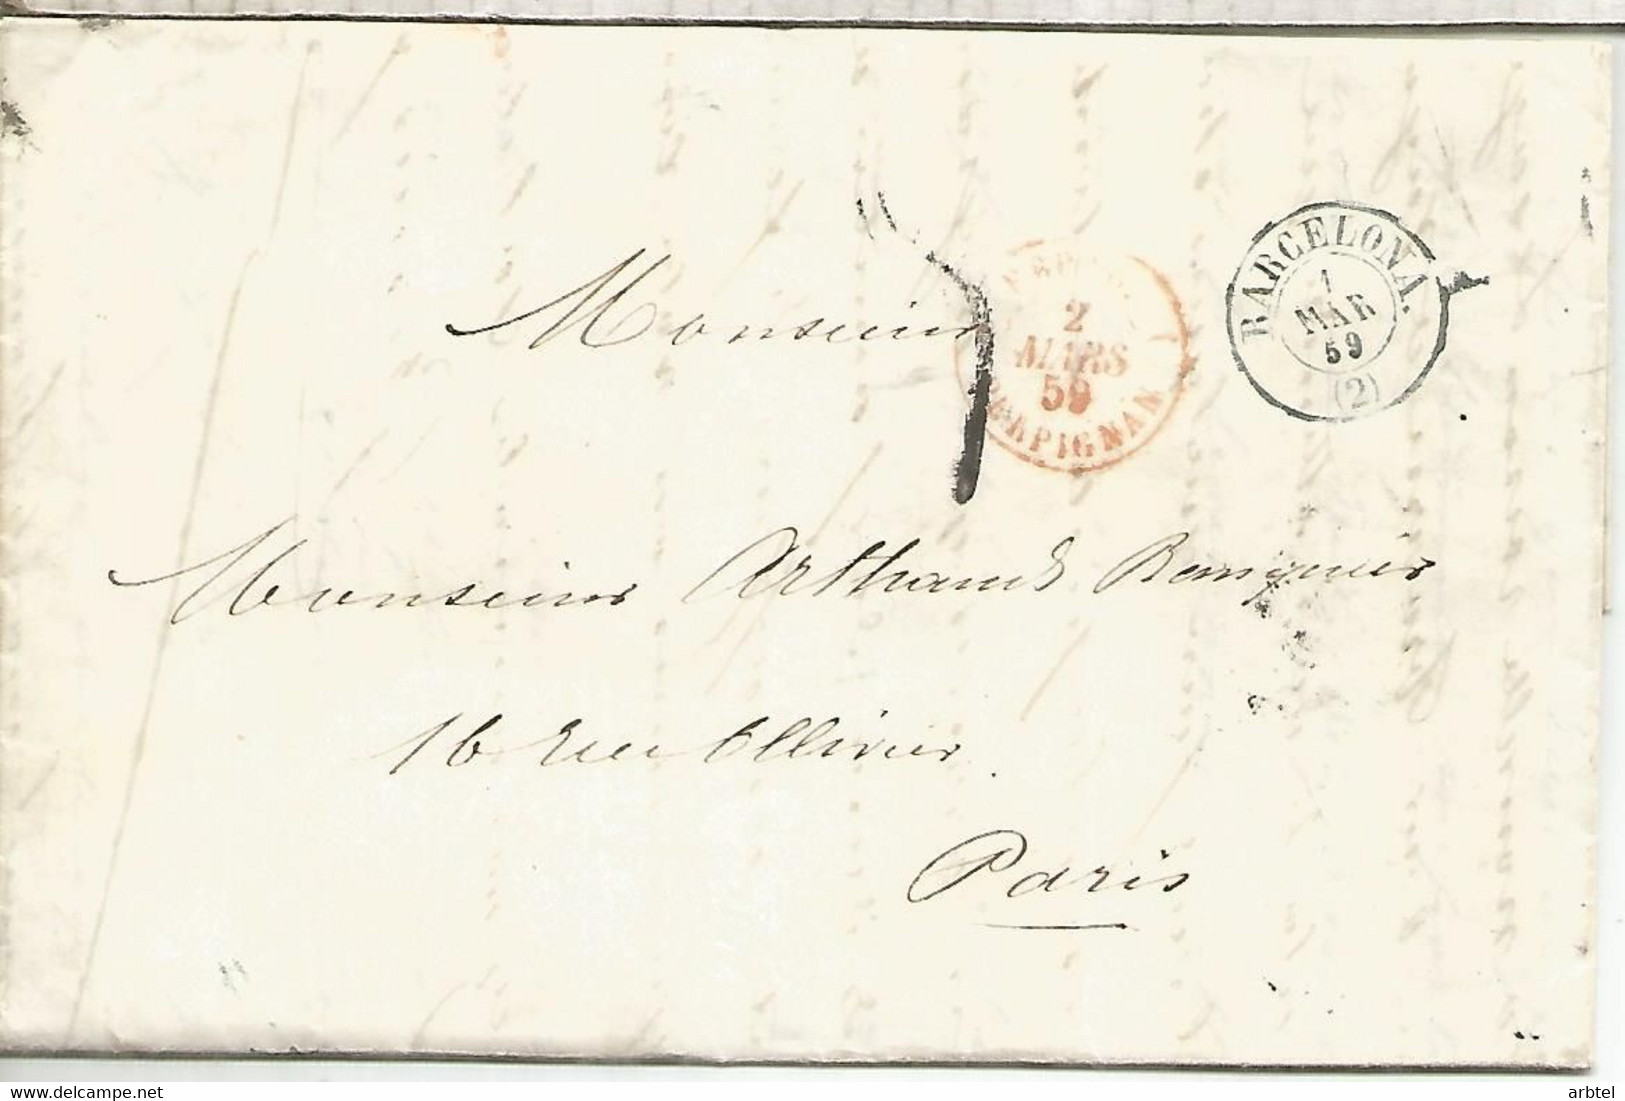 BARCELONA.
1
MAR
59
(2)
2
MARS
59
PERPIGNAN
Monsieur
Monsieur Arthaud Banquier
16 rue Ollivier
Paris
delcampe.net
arbtel